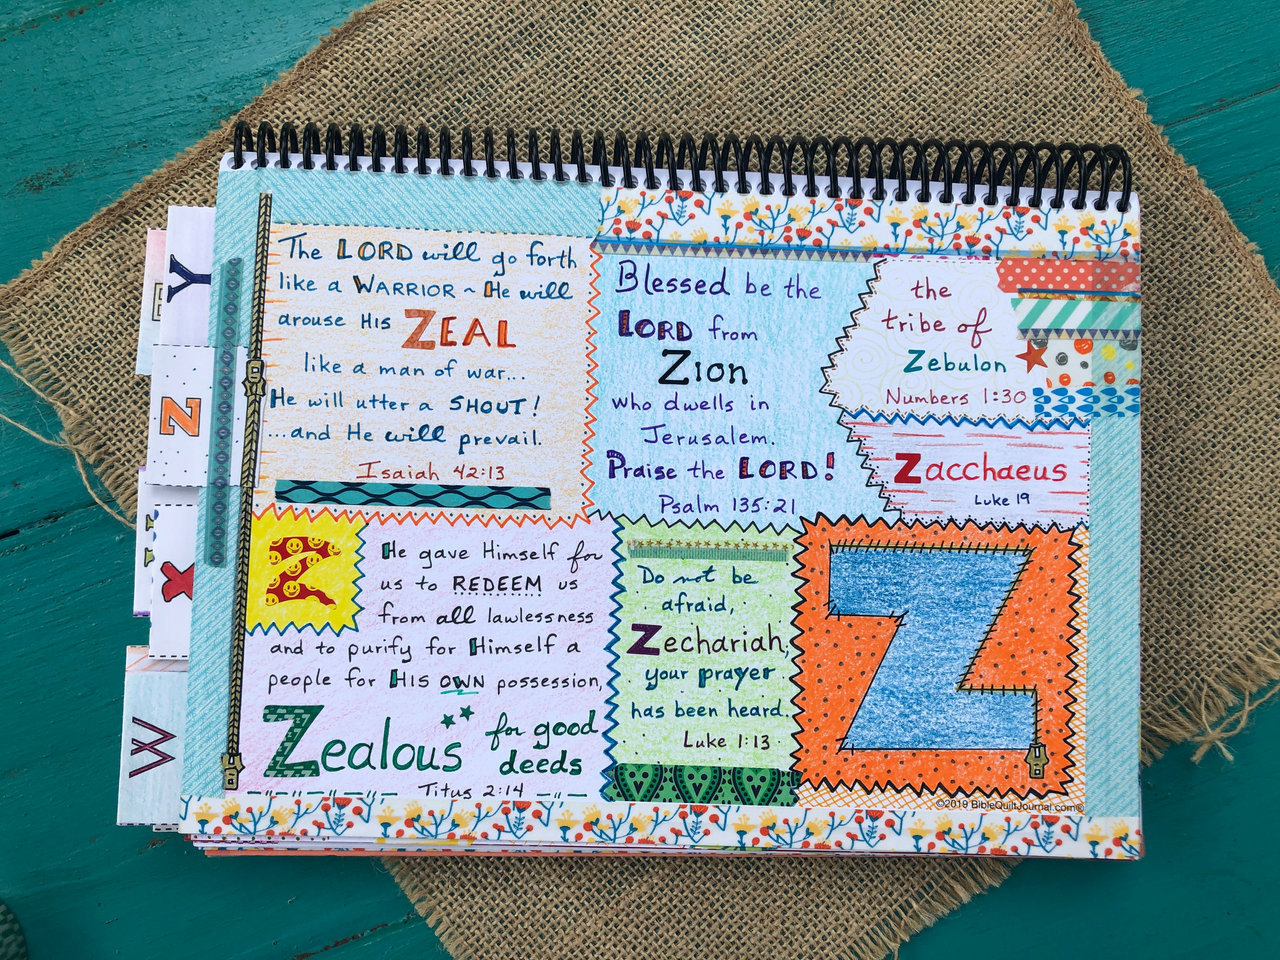 The LORD will go forth
like a WARRIOR ~ He will
arouse His ZEAL
like a man of war...
He will utter a SHOUT!
...and He will prevail.
Isaiah 42:13
Blessed be the
LORD from
Zion
who dwells in
Jerusalem.
Praise the LORD!
Psalm 135:21
the
tribe of
Zebulon
Numbers 1:30
Zacchaeus
Luke 19
He gave Himself for
us to REDEEM us
from all lawlessness
and to purify for Himself a
people for His OWN possession,
Zealous for good
deeds
Titus 2:14
Do not be
afraid,
Zechariah,
your prayer
has been heard.
Luke 1:13
Z
©2019 BibleQuiltJournal.com®
Y
Z
X
W